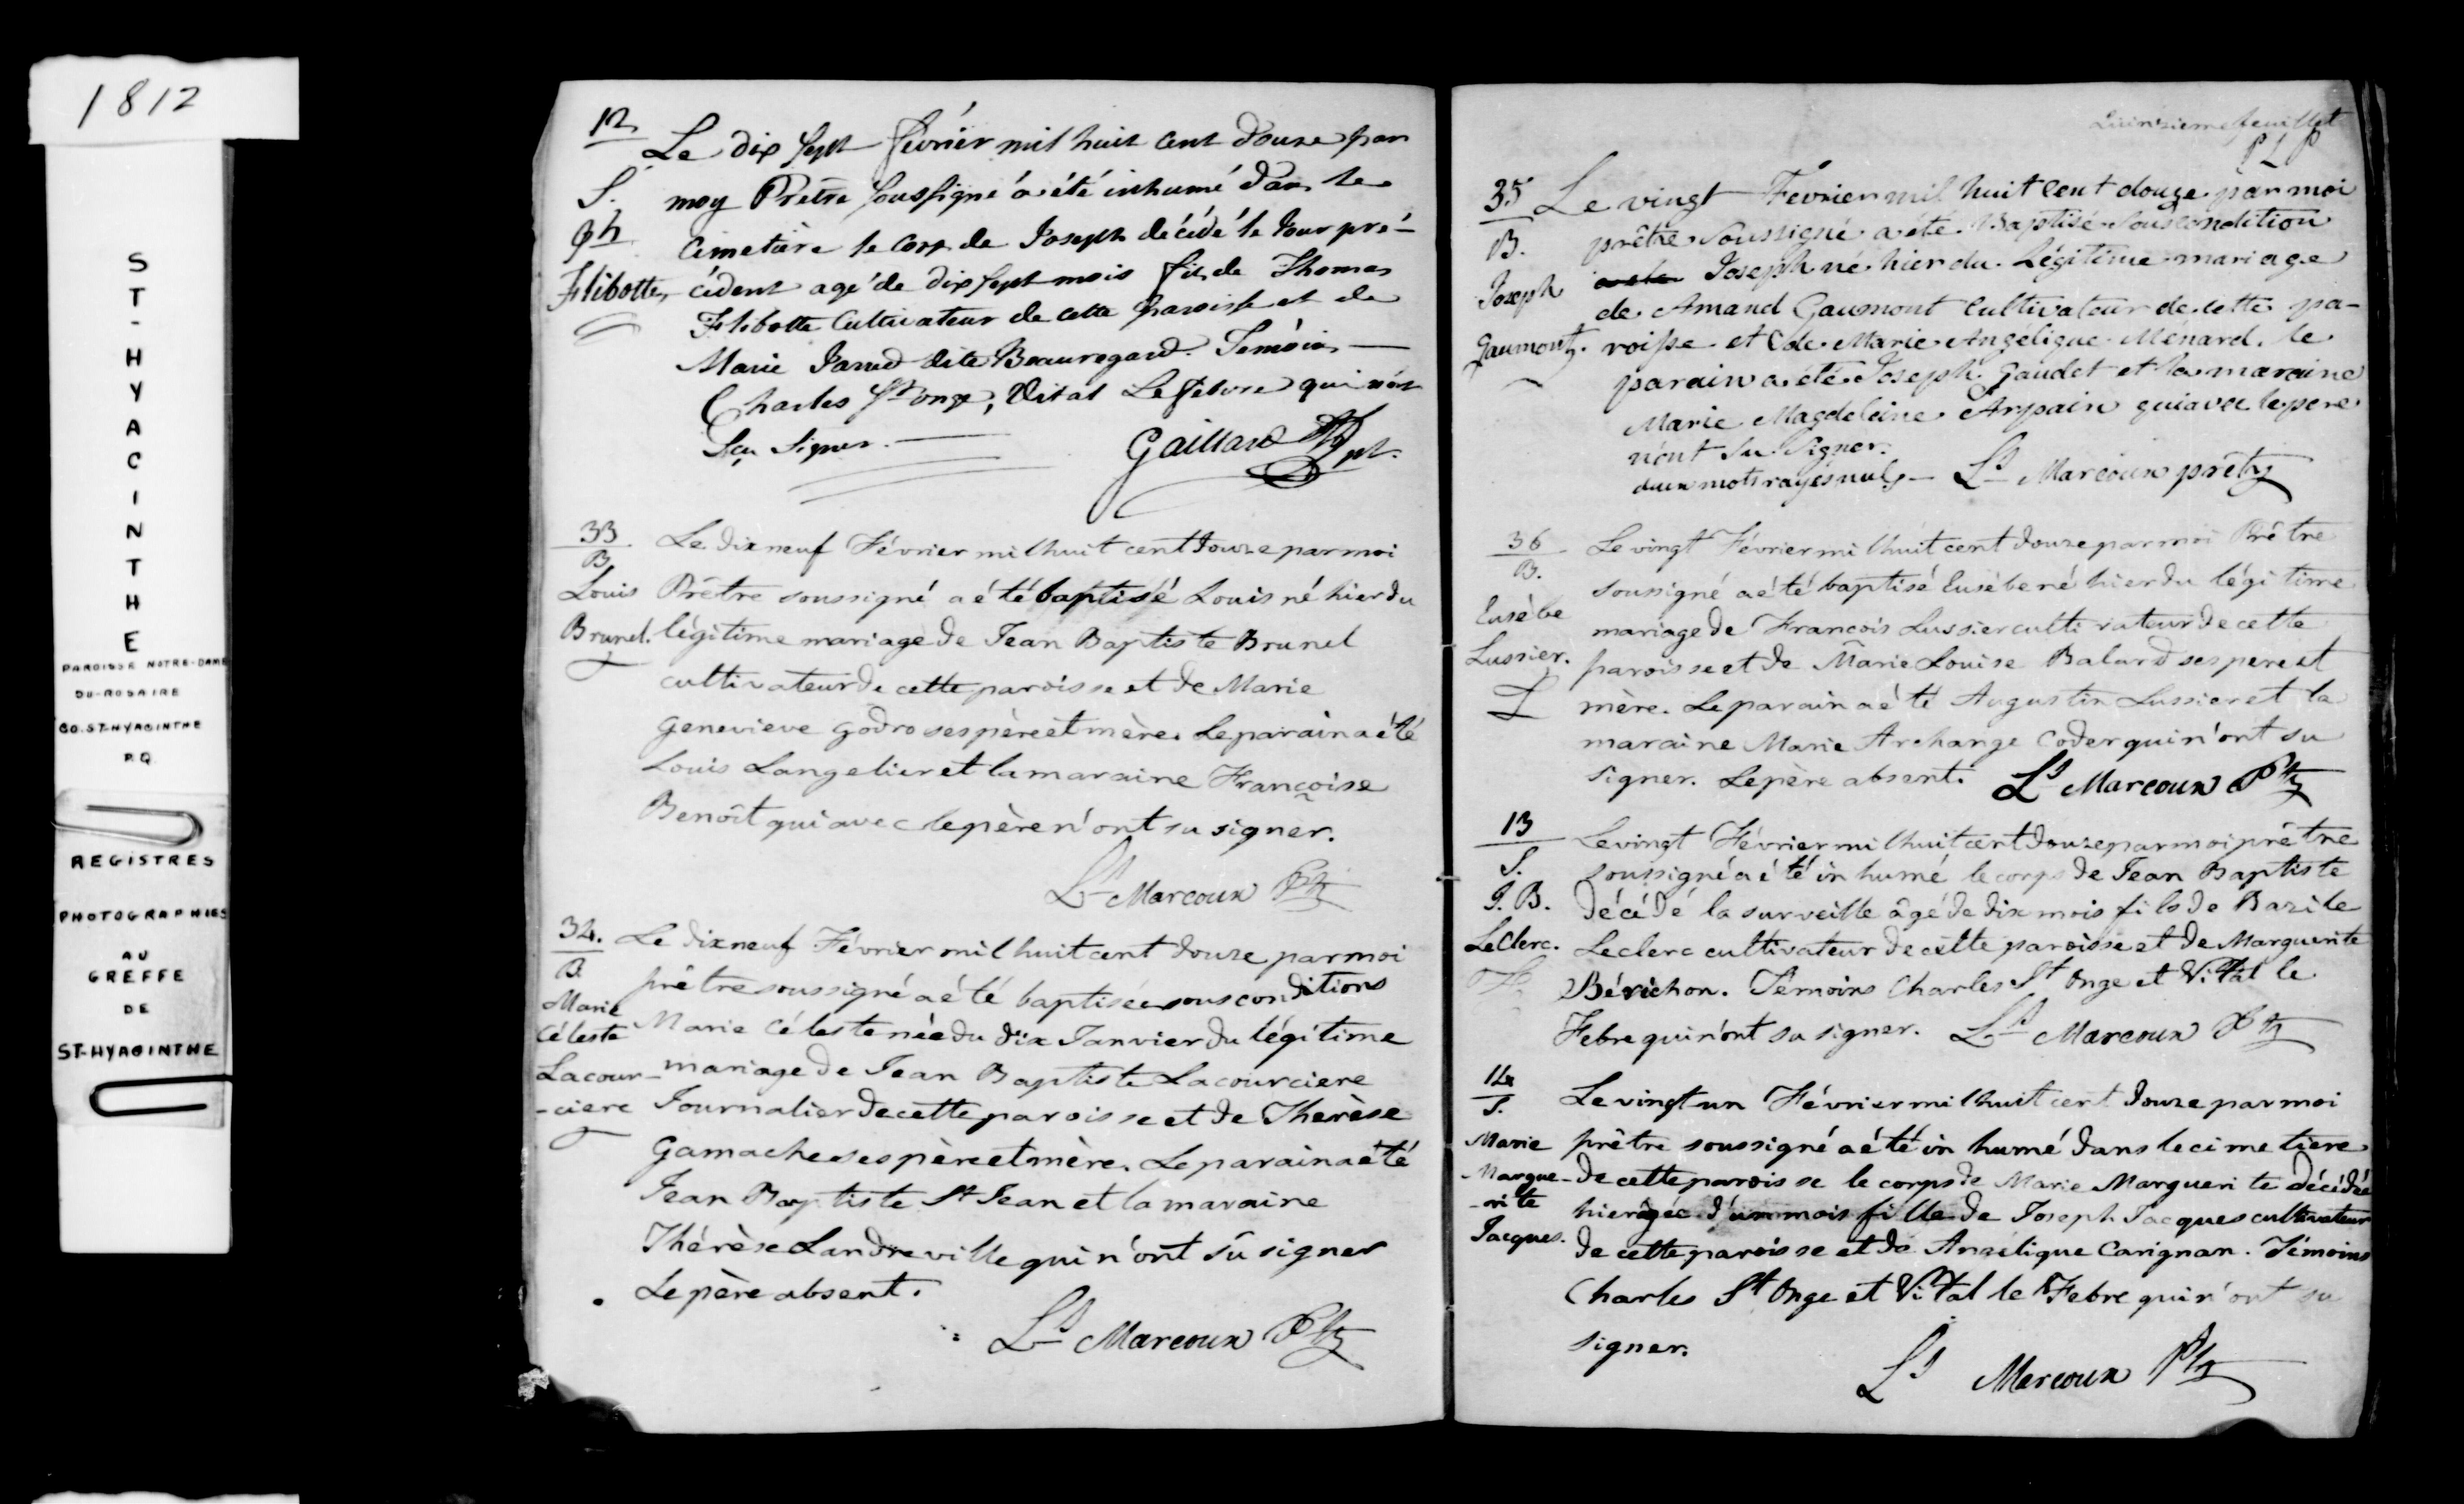 1812
ST-HYACINTHE
PAROISSE NOTRE-DAME
DU-ROSAIRE
CO. ST-HYACINTHE
P.Q.
REGISTRES
PHOTOGRAPHIES
AU
GREFFE
DE
ST-HYACINTHE
12
S.
Jh
Flibotte
Le dix sept février mil huit cent douze par
moy Prêtre soussigné a été inhumé dans le
Cimetière le corp de Joseph décédé le Jour pré-
cédent agé de dix sept mois fils de Thomas
Flibotte Cultivateur de cette paroisse et de
Marie Jared dite Beauregard. Témoins
Charles St onge, Vital Lefebvre qui n'ont
Sçu Signer.
Gaillard Ptr
33
B
Louis
Brunel.
Le dix neuf Février mil huit cent douze par moi
Prêtre soussigné a été baptisé Louis né hier du
légitime mariage de Jean Baptiste Brunel
cultivateur de cette paroisse et de Marie
Genevieve godro ses père et mère. Le parain a été
Louis Langelier et la maraine Françoise
Benoît qui avec le père n'ont su signer.
Ls Marcoux Ptr
34.
B.
Marie
Céleste
Lacour-
-ciere
Le dix neuf Février mil huit cent douze par moi
prêtre soussigné a été baptisée sous conditions
Marie Céleste née du dix Janvier du légitime
mariage de Jean Baptiste Lacourciere
Journalier de cette paroisse et de Therèse
Gamache ses père et mère. Le parain a été
Jean Baptiste St Jean et la maraine
Thérèse Landreville qui n'ont sû signer
Le père absent.
Ls Marcoux Ptr
Quinzieme feuillet
P L P
35
B.
Joseph
Gaumont.
Le vingt Février mil huit cent douze par moi
prêtre Soussigné a été Baptisé sous condition
Joseph né hier du Légitime mariage
de Amand Gaumont Cultivateur de cette pa-
roisse et de Marie Angélique Ménard. le
parain a été Joseph Gaudet et la maraine
Marie Magdeleine Arpain qui avec le pere
n'ont Su Signer.
deux mots rayés nuls - Ls Marcoux prêtr
36
B.
Eusèbe
Lussier.
Le vingt Février mil huit cent douze par moi Prêtre
soussigné a été baptisé Eusèbe né hier du légitime
mariage de Francois Lussier cultivateur de cette
paroisse et de Marie Louise Balard ses pere et
mère. Le parain a été Augustin Lussier et la
maraine Marie Archange Coder qui n'ont su
signer. Le père absent. Ls Marcoux Ptr
13
S.
J. B.
LeClerc.
Le vingt Février mil huit cent douze par moi prêtre
soussigné a été inhumé le corps de Jean Baptiste
décédé la surveille âgé de dix mois fils de Bazile
Leclerc cultivateur de cette paroisse et de Marguerite
Bérichon. Témoins Charles St Onge et Vital le
Febre qui n'ont su signer. Ls Marcoux Ptr
14
S.
Marie
-Margue-
-rite
Jacques.
Le vingt un Février mil huit cent douze par moi
prêtre soussigné a été inhumé dans le cimetière
de cette paroisse le corps de Marie Marguerite décédée
hier âgée d'un mois fille de Joseph Jacques cultivateur
de cette paroisse et de Angélique Carignan. Témoins
Charles St Onge et Vital le Febre qui n'ont su
signer.
Ls Marcoux Ptr